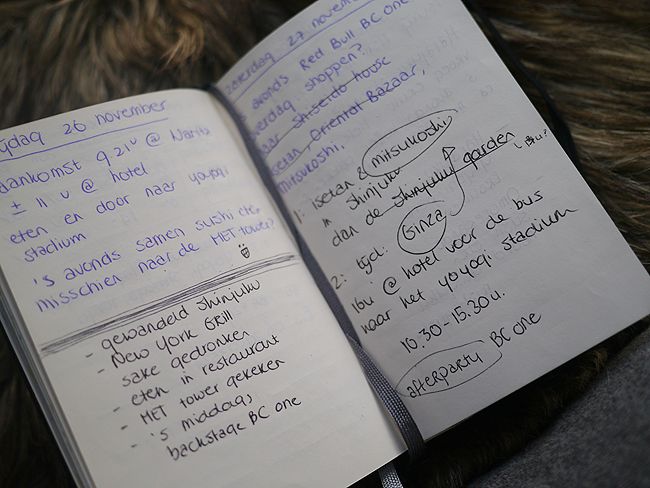 ydag 26 november
aankomst 9 21 u @ Narita
± 11 u @ hotel
eten en door naar yoyogi
stadium
's avonds samen sushi eten
misschien naar de MET tower?
- gewandeld Shinjuku
- New York Grill
- sake gedronken
- eten in restaurant
- MET tower gekeken
- 's middags
backstage BC one
zaterdag 27 november
's avonds Red Bull BC One
overdag shoppen?
naar Shiseido house
Isetan, Oriental Bazaar,
mitsukoshi.
1: isetan & mitsukoshi
in Shinjuku
dan de Shinjuku garden
Ginza
2: tijd:
16u @ hotel voor de bus
naar het yoyogi stadium
10.30-15.30u.
afterparty BC one